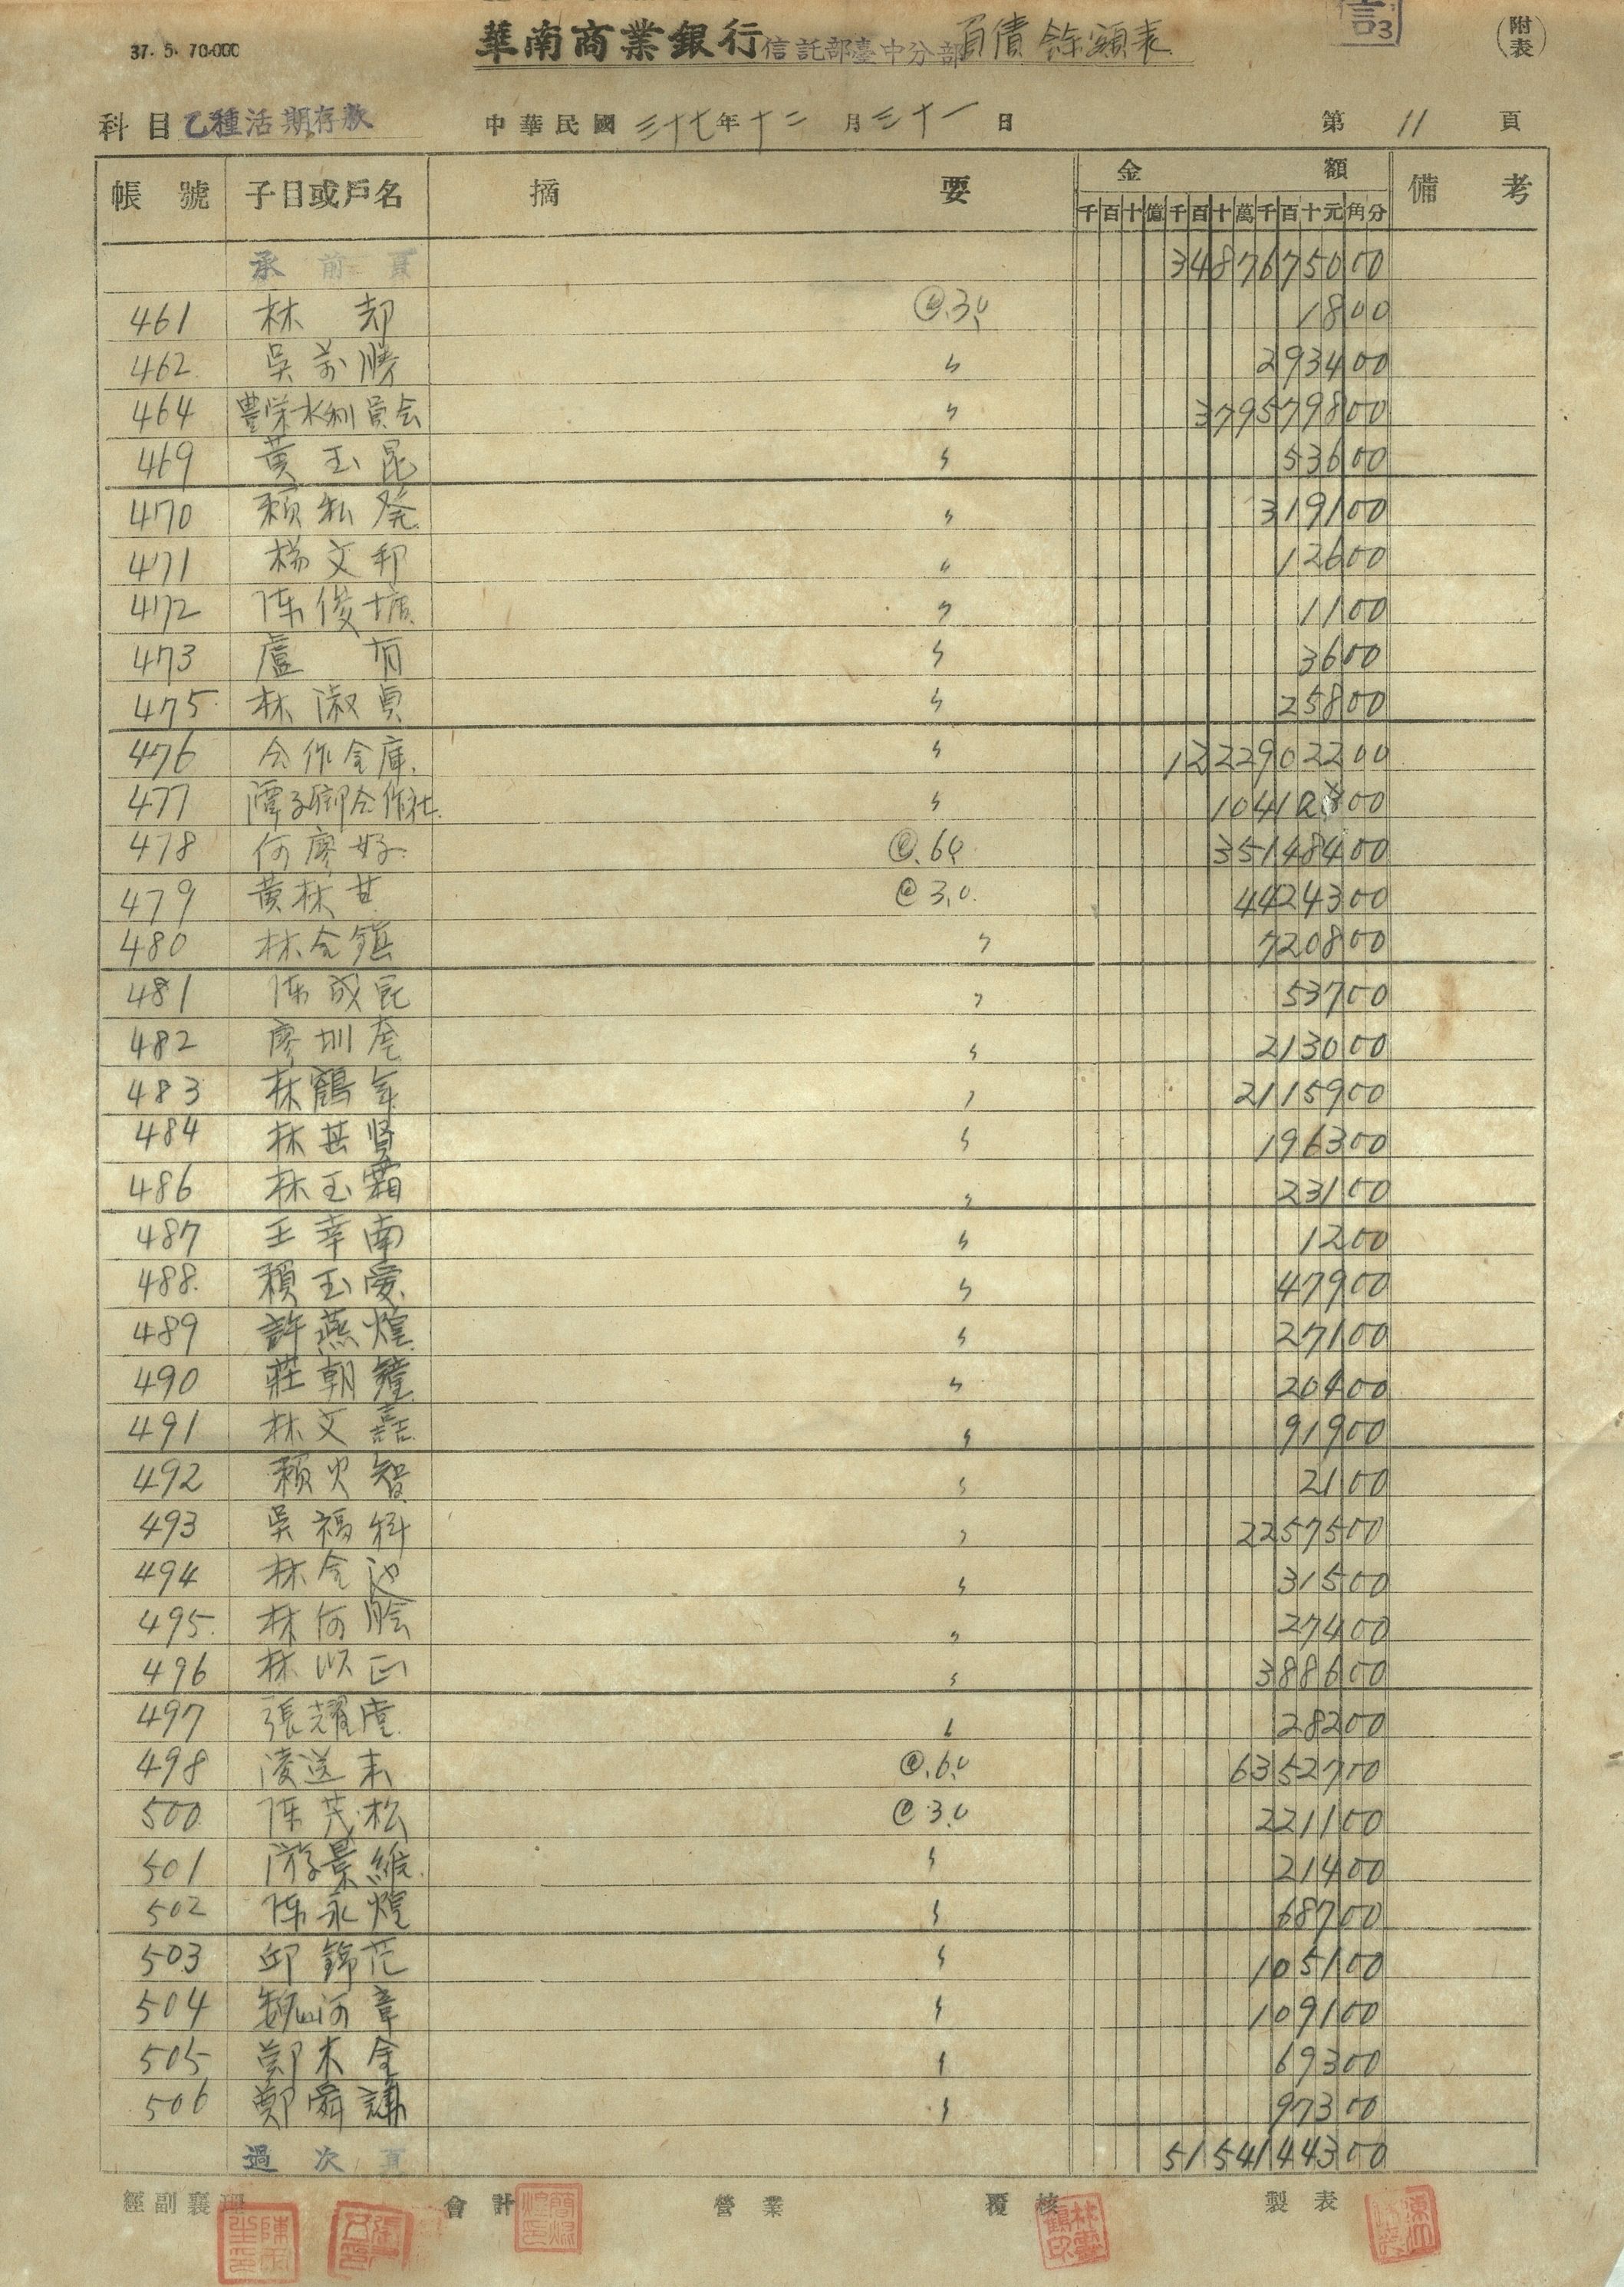 37. 5. 70.000 華南商業銀行信託部臺中分部負債餘額表 信3 (附表)
科目 乙種活期存款 中華民國三十七年十二月三十一日 第11頁
帳號 子目或戶名 摘要 金額 備考
千百十億千百十萬千百十元角分
承前頁 3487675000
461 林却 @.3.0 1800
462 吳前勝 〃 293400
464 豊榮水利員会 〃 379579800
469 黃玉昆 〃 53600
470 賴松發 〃 319100
471 楊文邦 〃 12600
472 陈俊墉 〃 1100
473 盧有 〃 3600
475 林淑貞 〃 25800
476 合作金庫 〃 1222902200
477 潭子鄉合作社 〃 10412800
478 何廖好 @.6.0 35148400
479 黃林甘 @3.0 4424300
480 林金鎮 〃 720800
481 陈成昆 〃 53700
482 廖圳奎 〃 213000
483 林鶴年 〃 2115900
484 林甚賢 〃 196300
486 林玉霜 〃 23100
487 王幸南 〃 1200
488 賴玉愛 〃 47900
489 許燕煌 〃 27100
490 莊朝鐘 〃 20400
491 林文嚞 〃 91900
492 賴火智 〃 2100
493 吳福科 〃 2257500
494 林金池 〃 31500
495 林何膾 〃 27400
496 林以正 〃 388600
497 張耀虎 〃 28200
498 凌送來 @.6.0 6352700
500 陈茂松 @3.0 221100
501 游景維 〃 21400
502 陈永煌 〃 68700
503 邱錦花 〃 105100
504 魏河章 〃 109100
505 鄭木金 〃 69300
506 鄭舜謙 〃 97300
過次頁 5154144300
經副襄理 會計 營業 覆核 製表